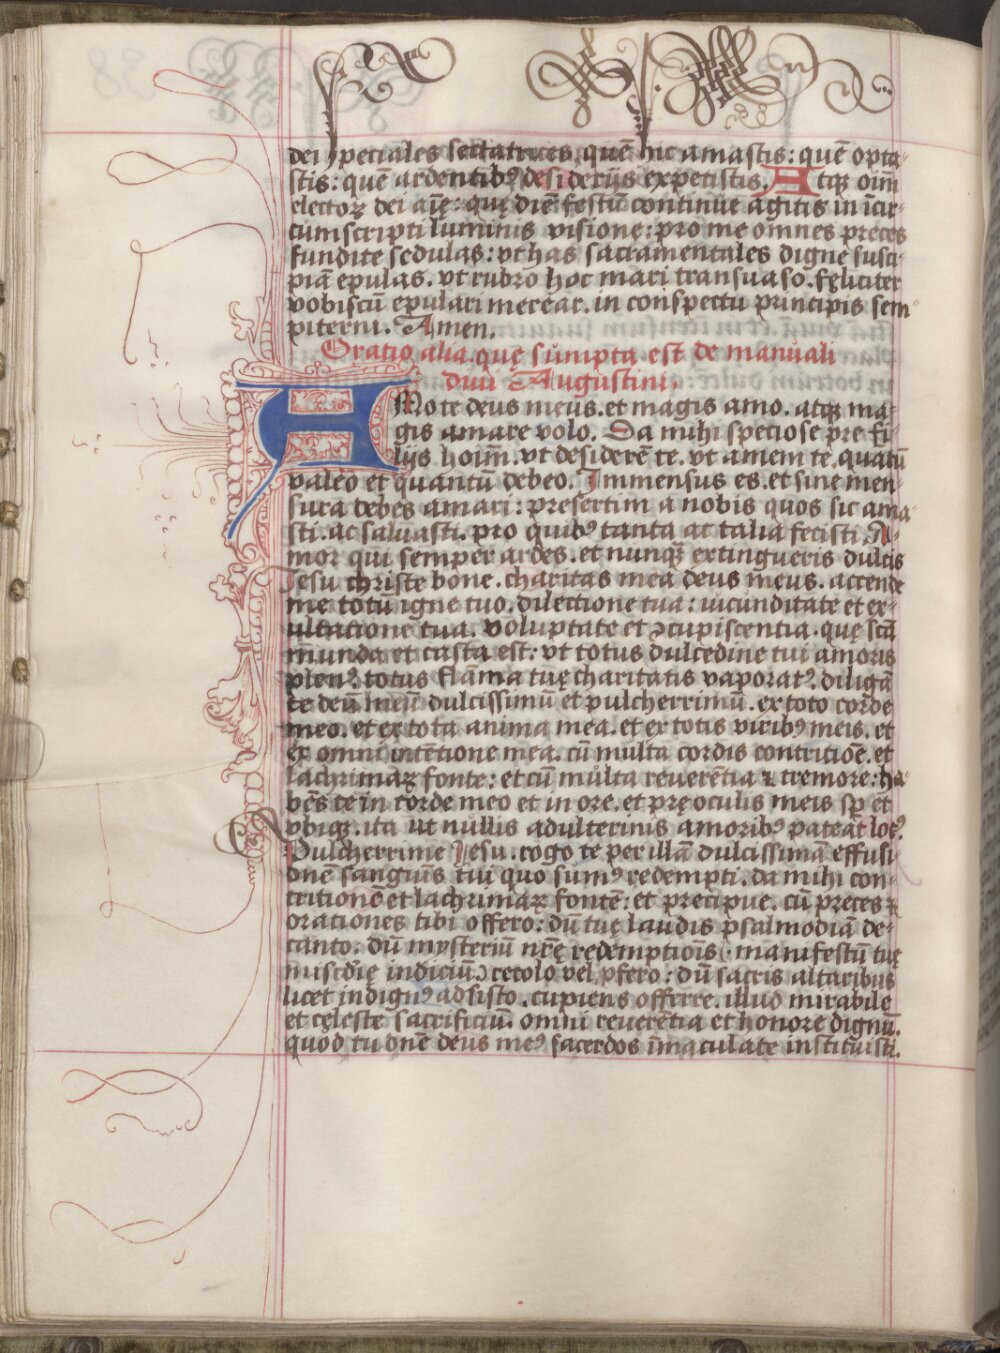 dei speciales sectatrices, quē hic amastis: quē opta-
stis: quē ardentibꝰ desiderijs expetistis. Atqꝫ oīm
electoꝝ dei aīę: quę diē festū continue agitis in īcir-
cumscripti luminis visione: pro me omnes preces
fundite sedulas: vt has sacramentales digne susci-
piā epulas. vt rubro hoc mari transuaso. fęliciter
vobiscū epulari merear. in conspectu principis sem-
piterni. Amen.
Oratio alia. quę sūmpta est de manuali
diui Augustini.
AMo te deus meus. et magis amo. atqꝫ ma-
gis amare volo. Da mihi speciose pre fi-
lijs hoīm. vt desiderē te. vt amem te. quātū
valeo et quantū debeo. Immensus es. et sine men-
sura debes amari: presertim a nobis quos sic ama-
sti. ac saluasti. pro quibꝰ tanta ac talia fecisti. A-
mor qui semper ardes. et nunqꝫ extingueris dulcis
Iesu christe bone. charitas mea deus meus. accende
me totū igne tuo. dilectione tua: iucunditate et ex-
ultatione tua. voluptate et ꝯcupiscentia. quę scā
munda et casta est: vt totus dulcedine tui amoris
plenꝰ. totus flāma tuę charitatis vaporatꝰ. diligā
te deū meū dulcissimū et pulcherrimū. ex toto corde
meo. et ex tota anima mea. et ex totis viribꝰ meis. et
ex omni intētione mea. cū multa cordis contritiōe. et
lachrimaꝝ fonte: et cū multa reuerētia ⁊ tremore: ha-
bēs te in corde meo et in ore. et prę oculis meis sp̄ et
vbiqꝫ. ita ut nullis adulterinis amoribꝰ pateat locꝰ.
Pulcherrime Iesu. rogo te per illā dulcissimā effusi-
onē sanguis tui quo sumꝰ redempti. da mihi con-
tritionē et lachrimaꝝ fontē: et precipue. cū preces ⁊
orationes tibi offero: dū tuę laudis psalmodiā de-
canto. dū mysteriū nr̄ę redemptiōis. manifestū tuę
misc̄dię indiciū. recolo vel ꝓfero: dū sacris altaribus
licet indignꝰ adsisto. cupiens offerre. illud mirabile
et cęleste sacrificiū. omni reuerētia et honore dignū.
quod tu dn̄e deus meꝰ sacerdos īmaculate instituisti.